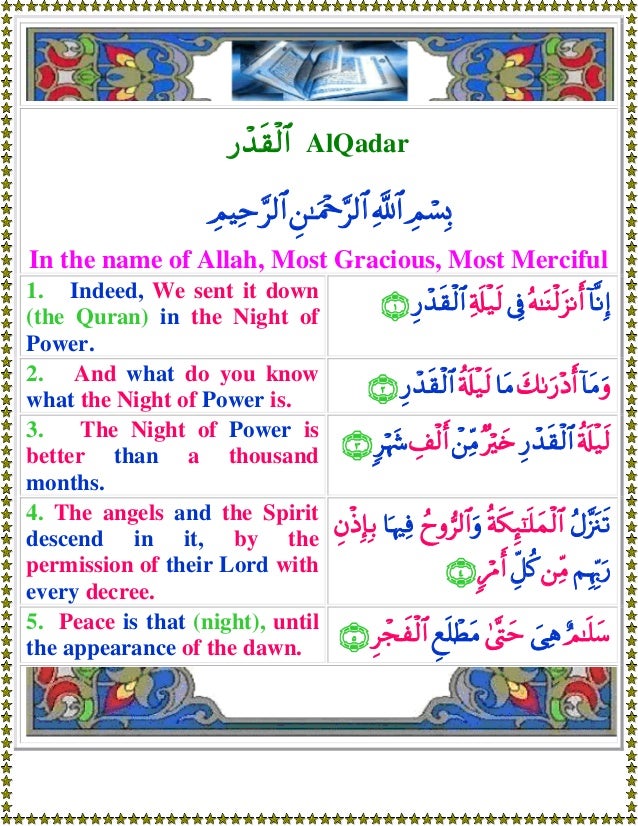 ٱلۡقَدۡر AlQadar
بِسۡمِ ٱللَّهِ ٱلرَّحۡمَـٰنِ ٱلرَّحِيمِ
In the name of Allah, Most Gracious, Most Merciful
1. Indeed, We sent it down
(the Quran) in the Night of
Power.
إِنَّآ أَنزَلۡنَـٰهُ فِى لَيۡلَةِ ٱلۡقَدۡرِ ١
2. And what do you know
what the Night of Power is.
وَمَآ أَدۡرَٮٰكَ مَا لَيۡلَةُ ٱلۡقَدۡرِ ٢
3. The Night of Power is
better than a thousand
months.
لَيۡلَةُ ٱلۡقَدۡرِ خَيۡرٌ مِّنۡ أَلۡفِ شَہۡرٍ ٣
4. The angels and the Spirit
descend in it, by the
permission of their Lord with
every decree.
تَنَزَّلُ ٱلۡمَلَـٰٓٮِٕكَةُ وَٱلرُّوحُ فِيہَا بِإِذۡنِ
رَبِّہِم مِّن كُلِّ أَمۡرٍ ٤
5. Peace is that (night), until
the appearance of the dawn.
سَلَـٰمٌ هِىَ حَتَّىٰ مَطۡلَعِ ٱلۡفَجۡرِ ٥